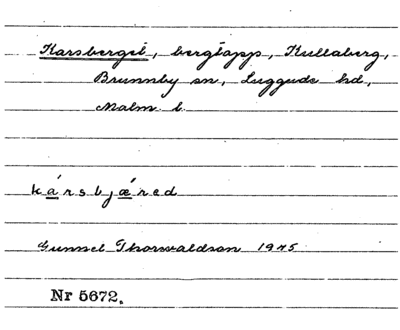 Karsberget, bergtopp, Kullaberg,
Brunnby sn, Luggude hd,
Malm. l.
kársbjǽred
Gunnel Thorvaldson 1975
Nr 5672.